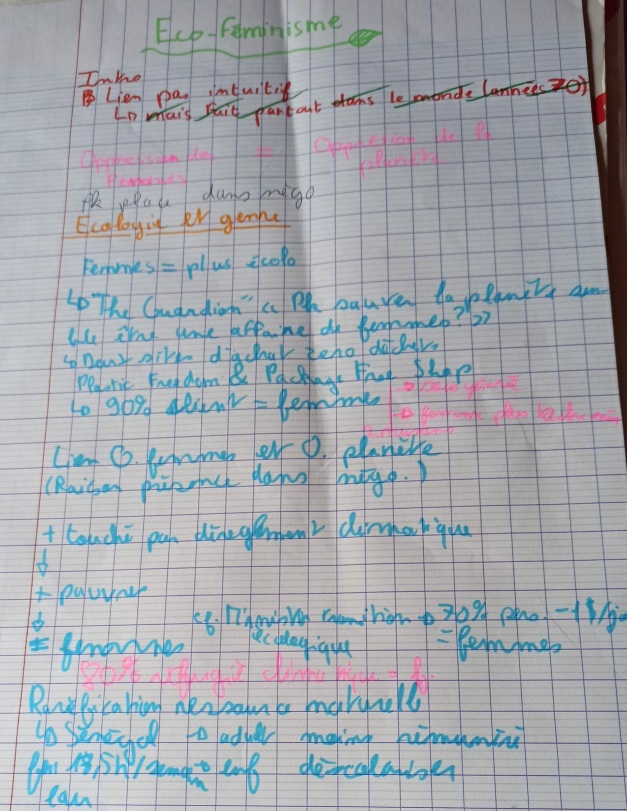 Eco-Feminisme
Intro
Lien pas intuitif
↳ mais fait partout dans le monde (années 70)
Oppression des Femmes = Oppression de la planète
place dans négo
Ecologie et genre
Femmes = plus écolo
↳ "The Guardian" " Pk sauver la planète sem-
ble être une affaire de femmes? "
↳ Deux sites d'achat zero déchets
Plastic Freedom & Package Free Shop
↳ 90% client = femmes
Lien O. femmes et O. planète
(Raison présence dans négo.)
+ touché par dérèglement climatique
↓
+ pauvres
↓
= femmes
cf. Ministre transition écologique → 70% pers. -1$/jr = femmes
80% réfugié climatique = f.
Raréfication ressource naturelle
↳ Sénégal → adult moins rémunéré
fm 17,5h/semaine → enf déscolariser
eau